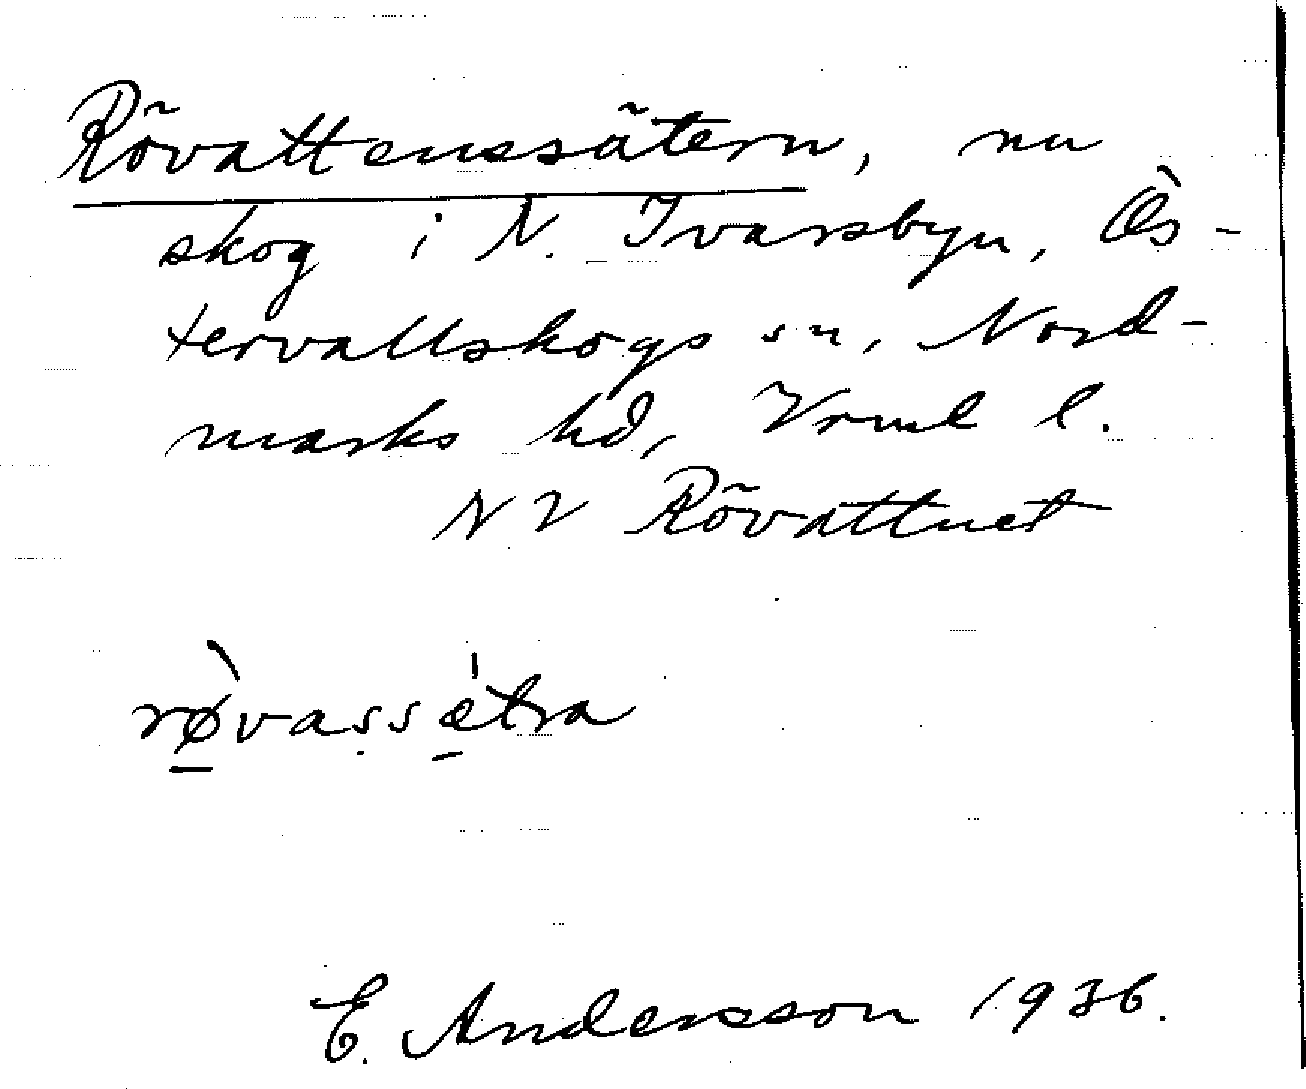 Rövattenssätern, nu
skog i N. Ivarsbyn, Ös-
tervallskogs sn, Nord-
marks hd, Vrml l.
NV Rövattnet
rø̀vassétra
E. Andersson 1936.